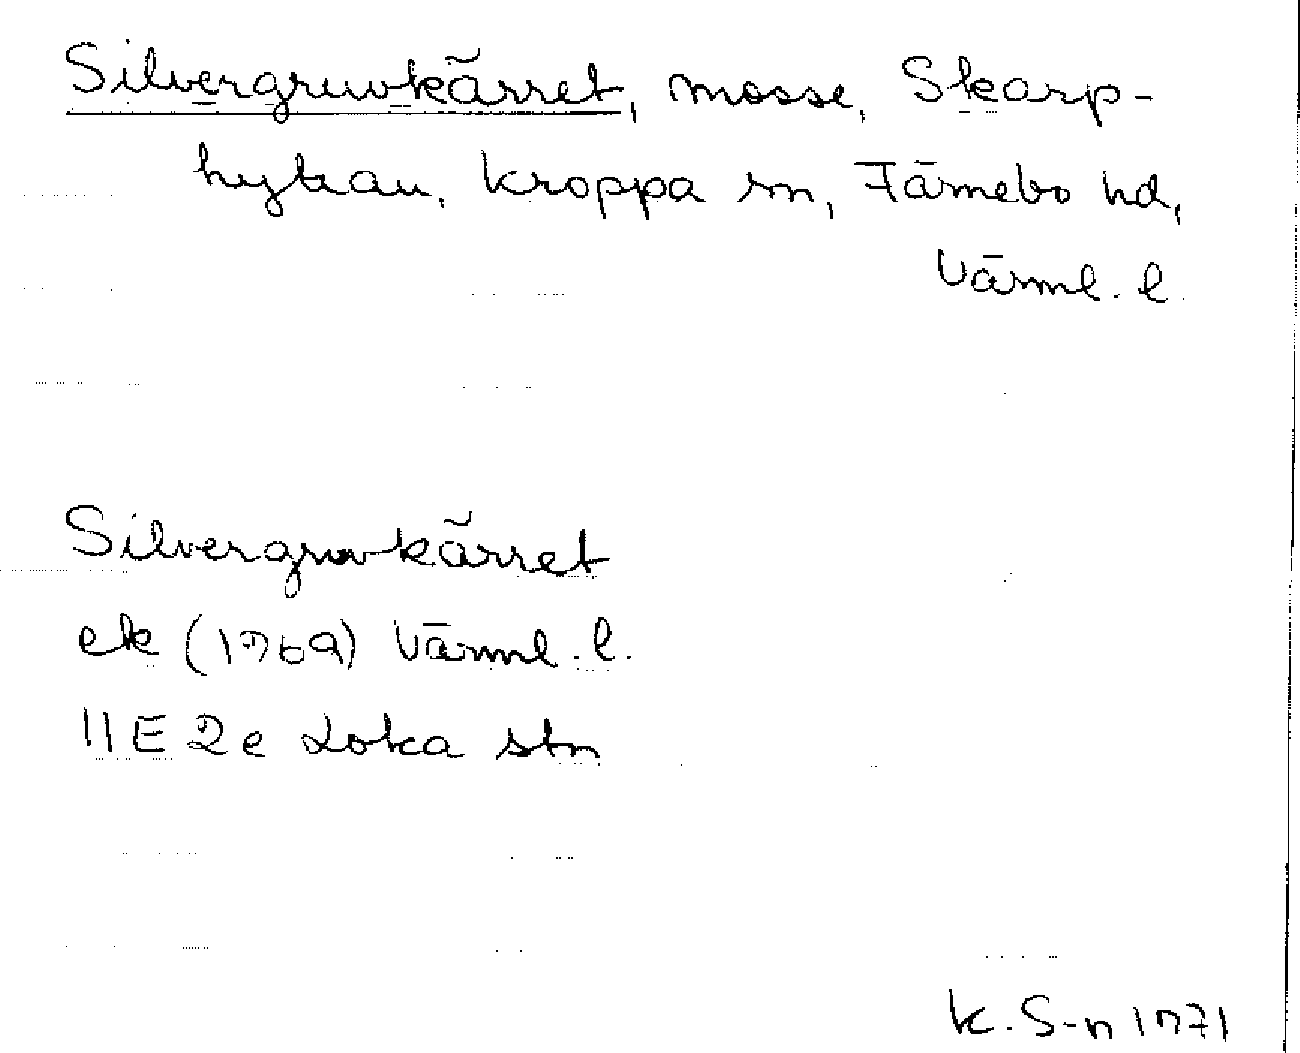 Silvergruvkärret, mosse, Skarp-
hyttan, Kroppa sn, Färnebo hd,
Värml. l.
Silvergruvkärret
ek (1969) Värml. l.
11E 2e Loka stn
K. S-n 1971